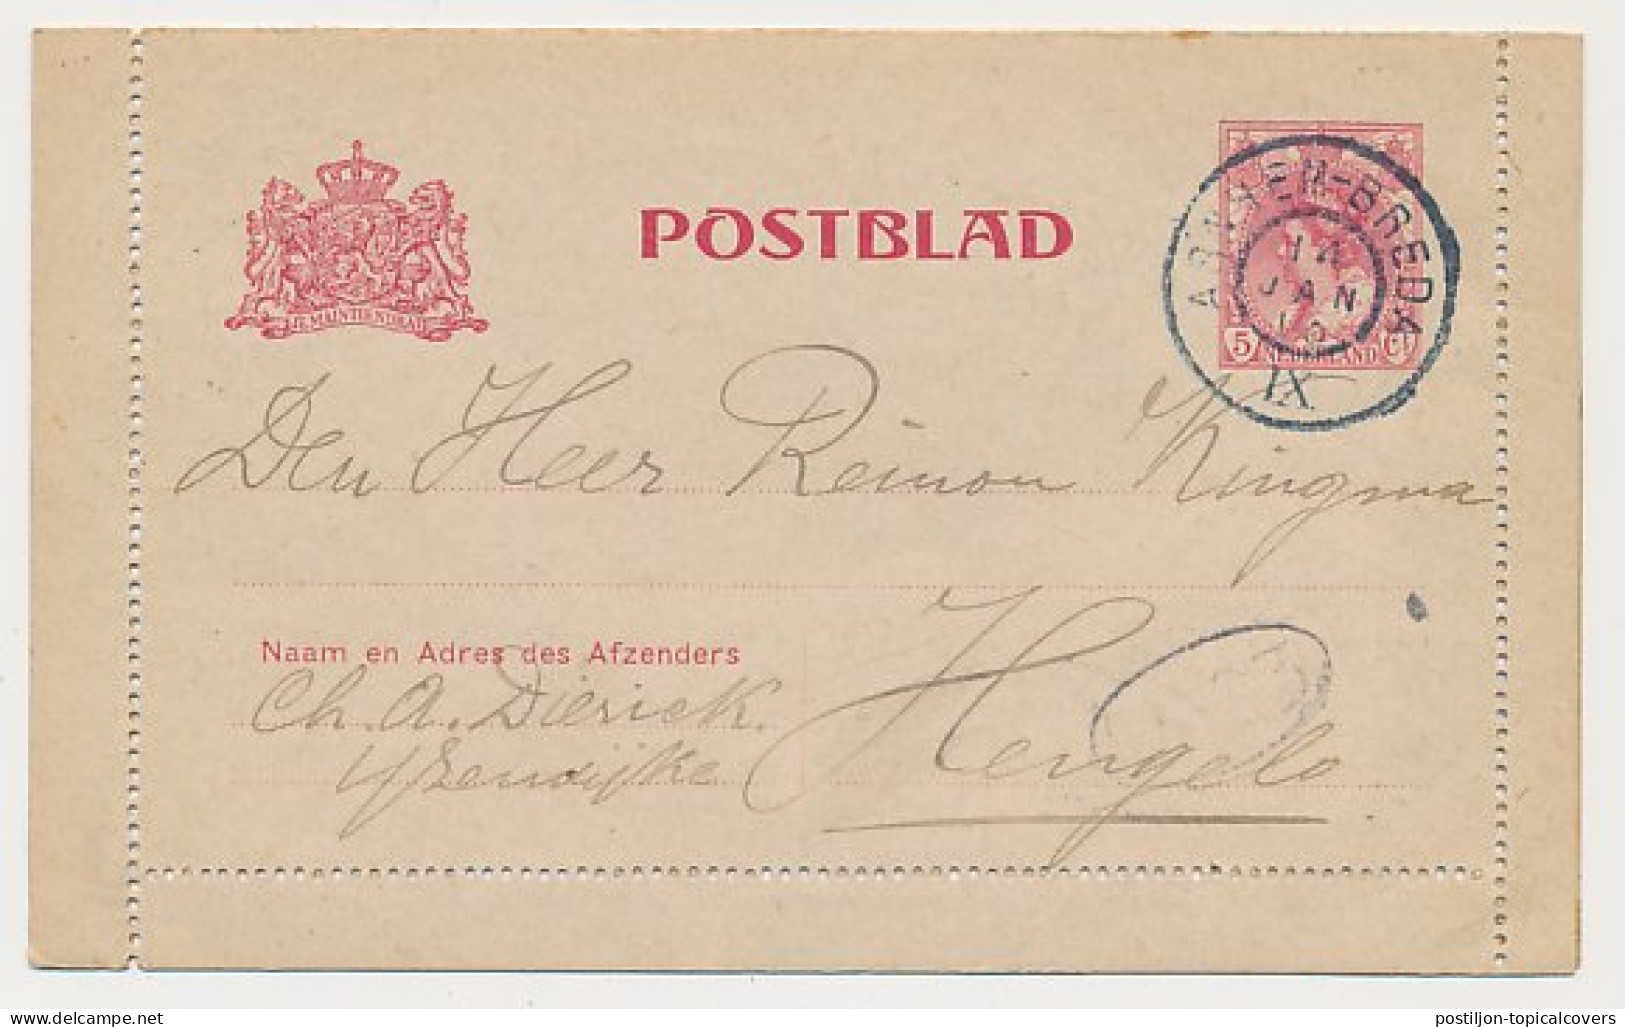 JE MAINTIENDRAI
POSTBLAD
ARNHEM-BREDA
14
JAN
IX
5 NEDERLAND Ct
Den Heer Reinon Kingma
Naam en Adres des Afzenders
Ch. A. Dierick.
IJzendijke
Hengelo
postiljon-topicalcovers